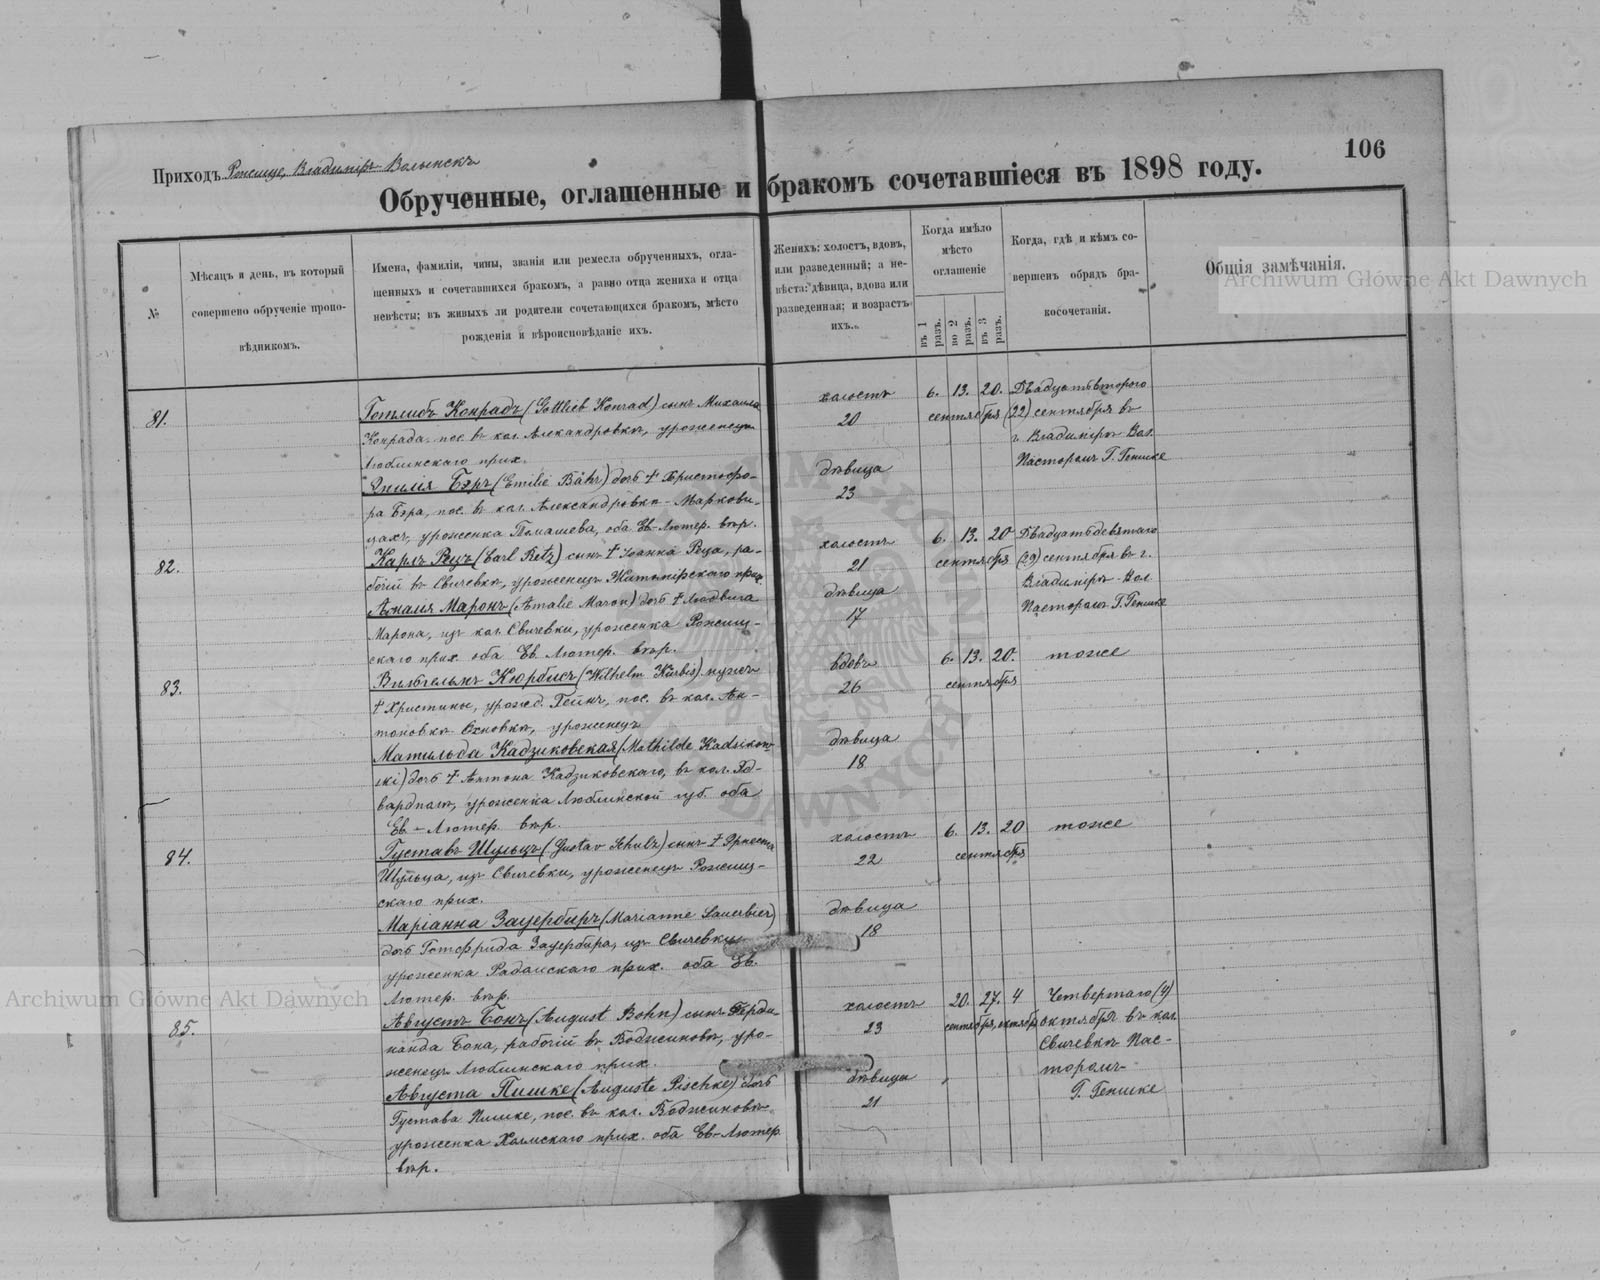 106
Приходъ Рожище, Владимiръ Волынскъ
Обрученные, оглашенные и бракомъ сочетавшiеся въ 1898 году.
№
Мѣсяцъ и день, въ который
совершено обрученiе пропо-
вѣдникомъ.
Имена, фамилiи, чины, званiя или ремесла обрученныхъ, огла-
шенныхъ и сочетавшихся бракомъ, а равно отца жениха и отца
невѣсты; въ живыхъ ли родители сочетающихся бракомъ, мѣсто
рожденiя и вѣроисповѣданiе ихъ.
Женихъ: холостъ, вдовъ,
или разведенный; а не-
вѣста: дѣвица, вдова или
разведенная; и возрастъ
ихъ.
Когда имѣло
мѣсто
оглашенiе
въ 1 разъ.
во 2 разъ.
въ 3 разъ.
Когда, гдѣ и кѣмъ со-
вершенъ обрядъ бра-
косочетанiя.
Общiя замѣчанiя.
Archiwum Główne Akt Dawnych
81.
Готлибъ Конрадъ (Gottlieb Konrad) сынъ Михаила
Конрада пос. въ кол. Александровкѣ, уроженецъ
Люблинскаго прих.
Эмилiя Бэръ (Emilie Bähr) дочь † Христофо-
ра Бэра, пос. въ кол. Александровкѣ - Маркови-
цахъ, уроженка Томашева, оба Ев-Лютер. вѣр.
холостъ
20
дѣвица
23
6. 13. 20.
сентября
Двадцатьвторого
(22) сентября въ
г. Владимiрѣ Вол.
Пасторомъ Г. Генике
82.
Карлъ Рецъ (Carl Retz) сынъ † Iоанна Реца, ра-
бочiй въ Свичевкѣ, уроженецъ Житомiрскаго прих.
Амалiя Маронъ (Amalie Maron) дочь † Людвига
Марона, изъ кол. Свичевки, уроженка Рожищ-
скаго прих. оба Ев. Лютер. вѣр.
холостъ
21
дѣвица
17
6. 13. 20
сентября
Двадцатьдевятаго
(29) сентября въ г.
Владимiрѣ - Вол.
Пасторомъ Г. Генике
83.
Вильгельмъ Кюрбисъ (Wilhelm Kürbis) мужъ
† Христины, урожд. Гейнъ, пос. въ кол. Ан-
тоновкѣ Оховкѣ, уроженецъ
Матильда Кадзиковская (Mathilde Kadzikow-
ski) дочь † Антона Кадзиковскаго, въ кол. Эд-
вардполѣ, уроженка Люблинской губ. оба
Ев - Лютер. вѣр.
вдовъ
26
дѣвица
18
6. 13. 20.
сентября
тоже
84.
Густавъ Шульцъ (Gustav Schulz) сынъ † Эрнеста
Шульца, изъ Свичевки, уроженецъ Рожищ-
скаго прих.
Марiанна Зауербиръ (Marianne Sauerbier)
дочь Готфрида Зауербира, изъ Свичевки
уроженка Радомскаго прих. оба Ев.
Лютер. вѣр.
холостъ
22
дѣвица
18
6. 13. 20
сентября
тоже
Archiwum Główne Akt Dawnych
85.
Августъ Бонъ (August Bohn) сынъ Ферди-
нанда Бона, рабочiй въ Бодженовкѣ, уро-
женецъ Люблинскаго прих.
Августа Пишке (Auguste Pischke) дочь
Густава Пишке, пос. въ кол. Бодженовкѣ
уроженка Холмскаго прих. оба Ев-Лютер.
вѣр.
холостъ
23
дѣвица
21
20. 27. 4
сентября, октября
Четвертаго (4)
октября въ кол.
Свичевкѣ Пас-
торомъ
Г. Генике